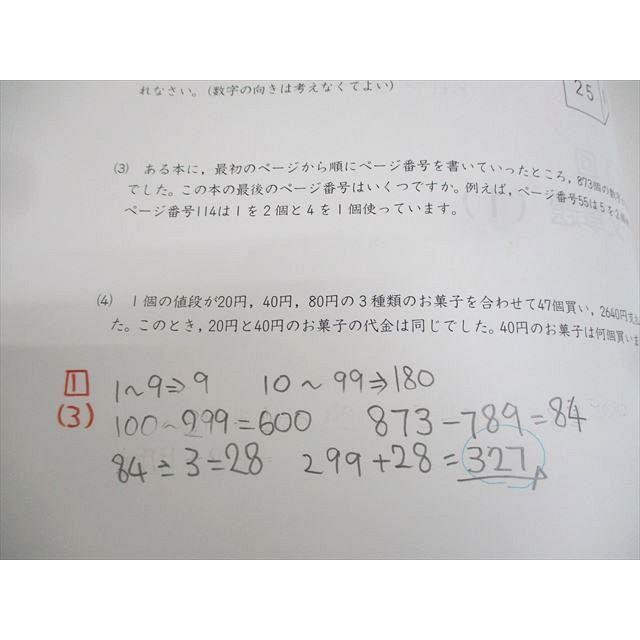 れなさい。(数字の向きは考えなくてよい)
25
(3) ある本に，最初のページから順にページ番号を書いていったところ，873個の数字
でした。この本の最後のページ番号はいくつですか。例えば，ページ番号55は5を2個
ページ番号114は1を2個と4を1個使っています。
(4) 1個の値段が20円，40円，80円の3種類のお菓子を合わせて47個買い，2640円支
た。このとき，20円と40円のお菓子の代金は同じでした。40円のお菓子は何個買いま
1 1~9⇒9 10~99⇒180
(3) 100~299=600 873-789=84
84÷3=28 299+28=327